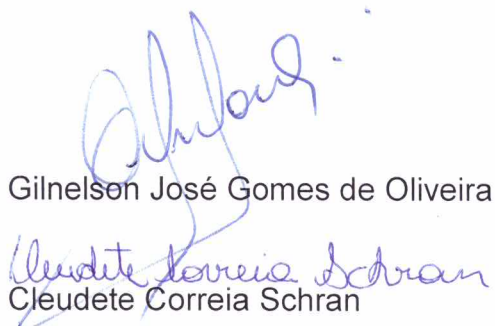 Gilnelson José Gomes de Oliveira
Cleudete Correia Schran
Cleudete Correia Schran